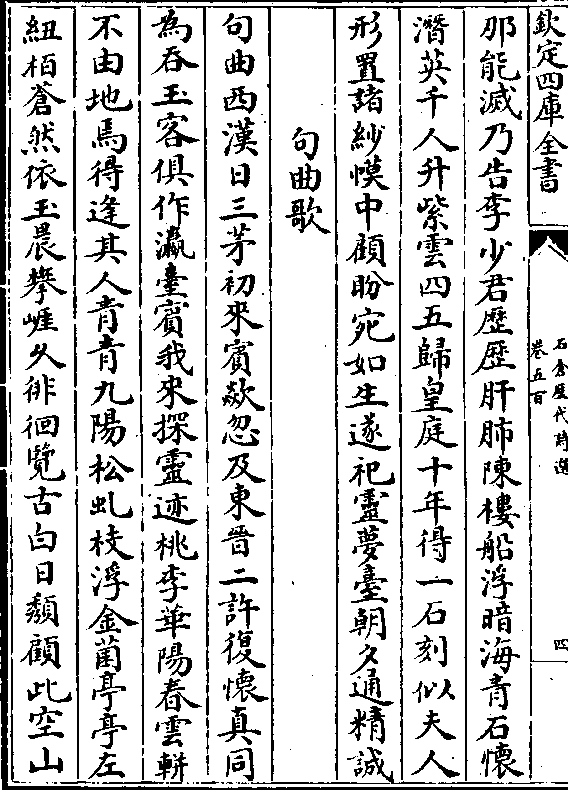 欽定四庫全書
石倉歷代詩選
卷五百
四
那能滅乃告李少君歷歷肝肺陳樓船浮暗海青石懷
潛英千人升紫雲四五歸皇庭十年得一石刻似夫人
形置諸紗幙中顧盼宛如生遂祀靈夢臺朝夕通精誠
句曲歌
句曲西漢日三茅初來賓欻忽及東晉二許復懷真同
為吞玉客俱作瀛臺賓我來探靈迹桃李華陽春雲軿
不由地焉得逢其人青青九陽松虬枝浮金菌亭亭左
紐栢蒼然依玉晨攀崕久徘徊覽古白日頽顧此空山